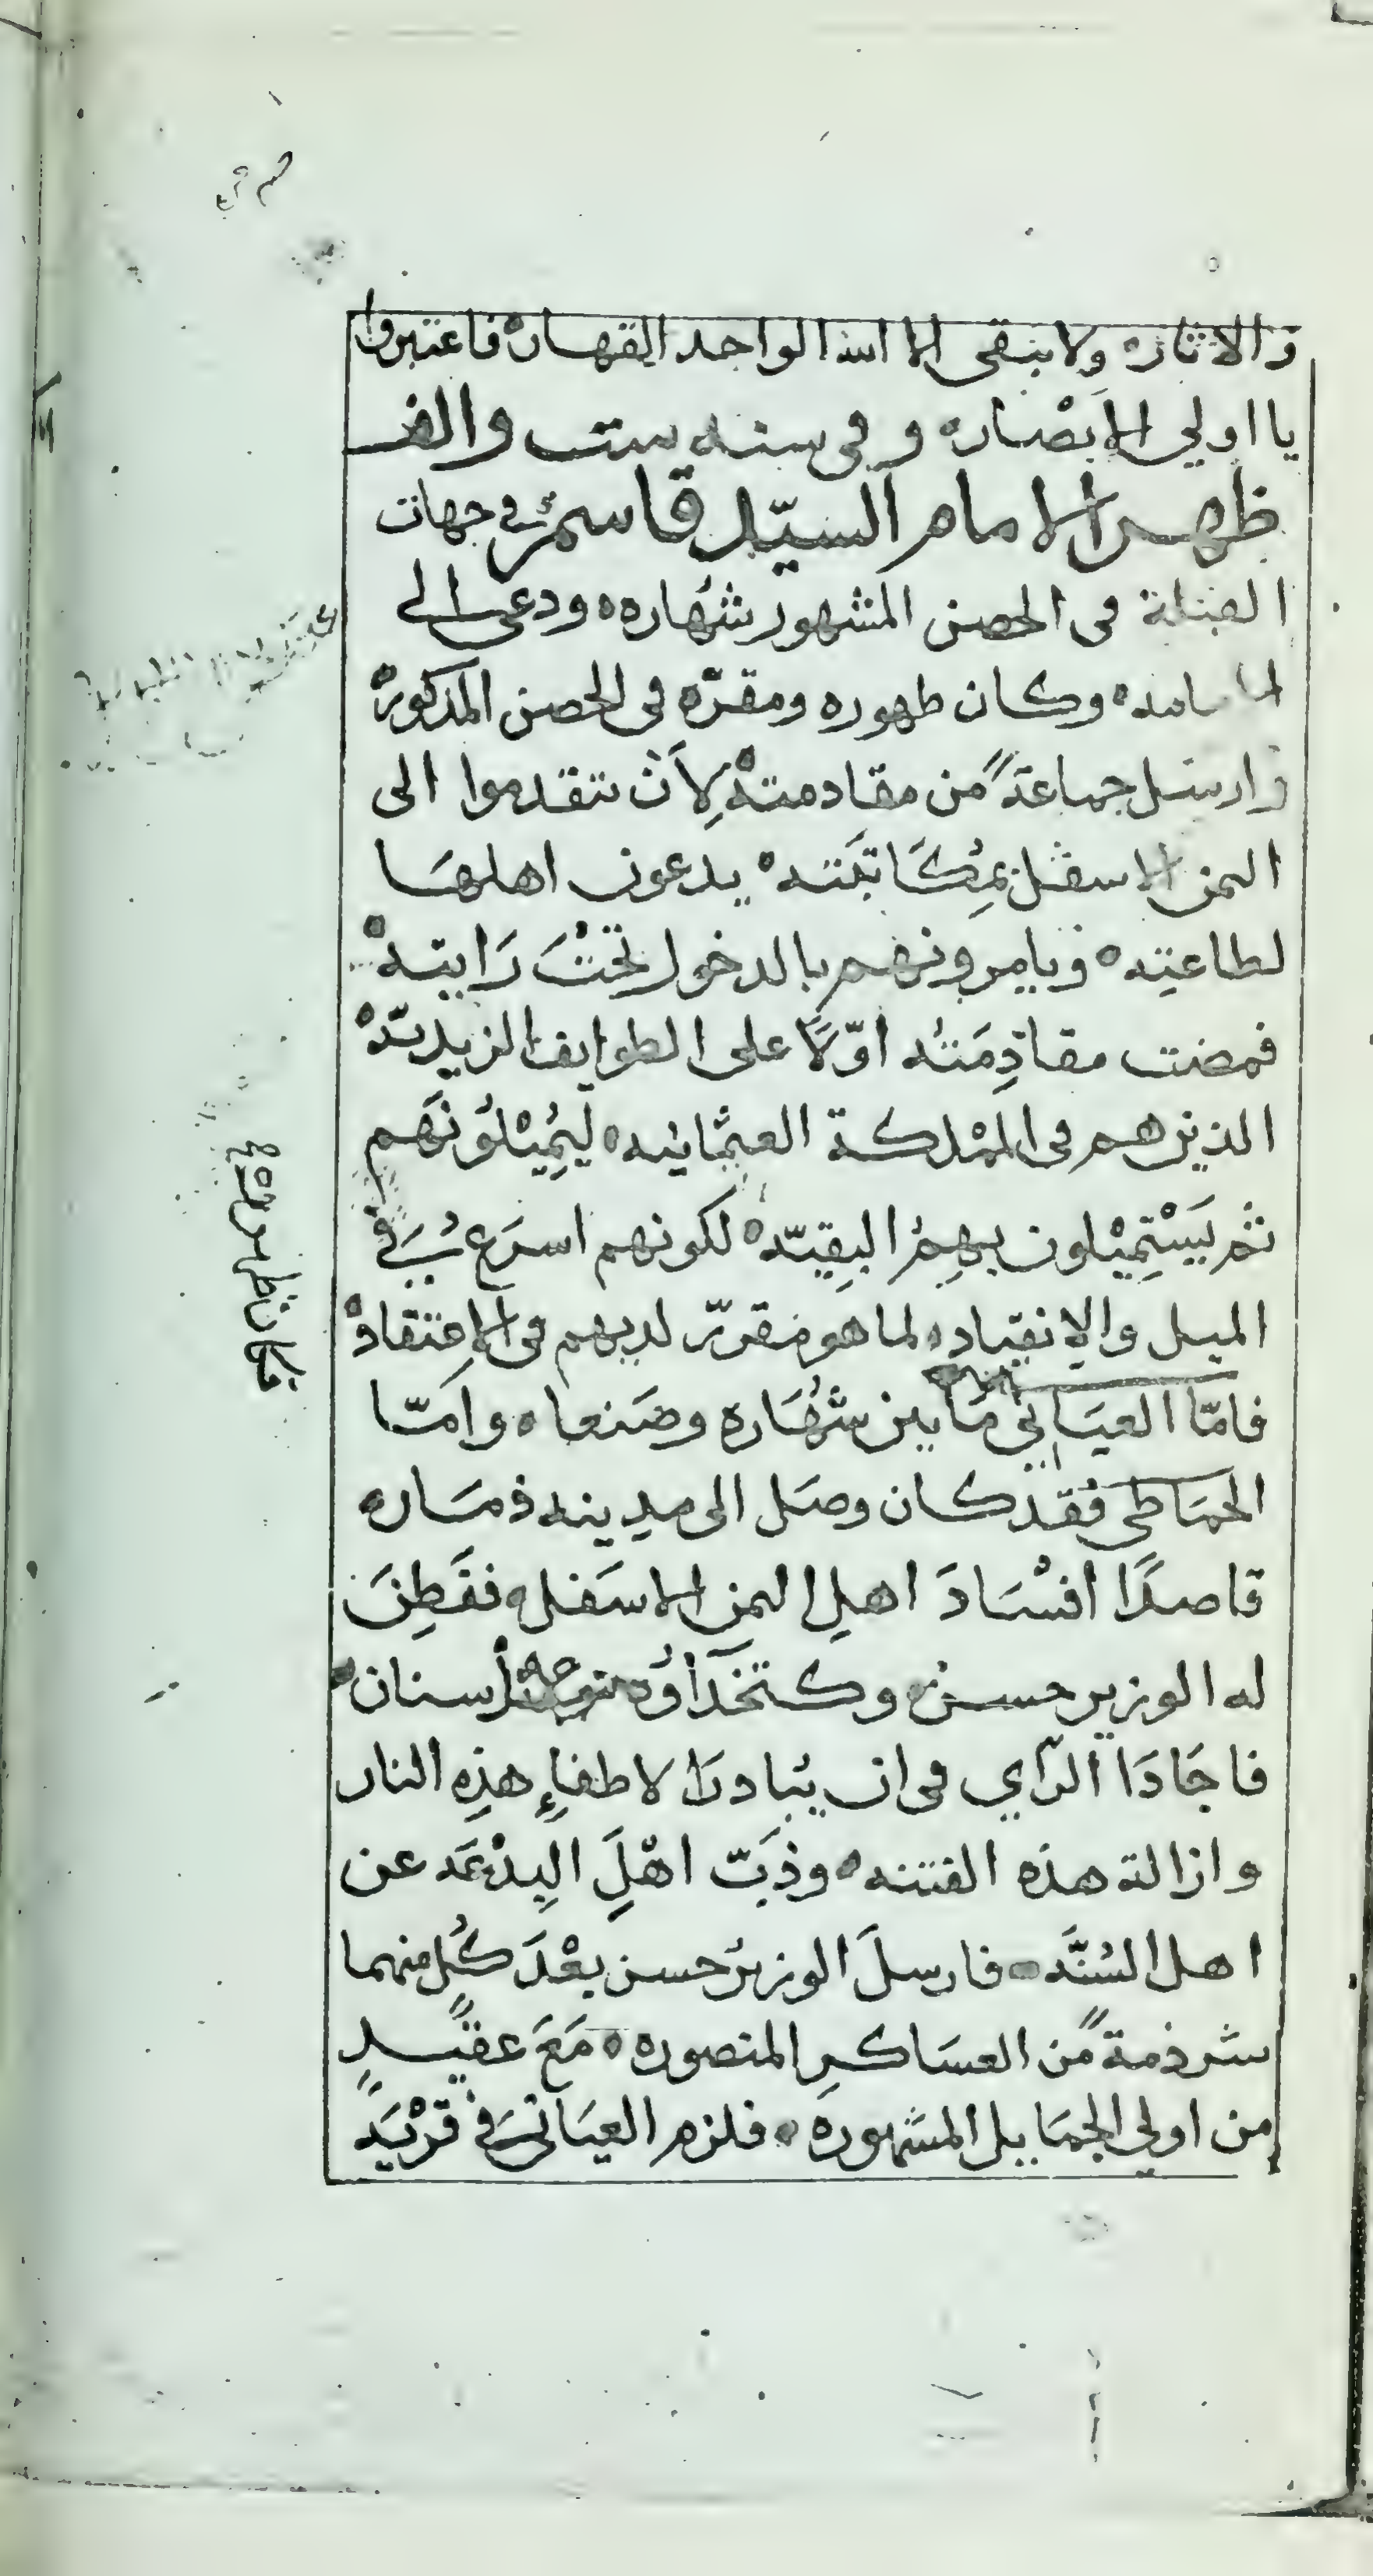 والاثاره ولا يبقى الا الله الواحد القهاره فاعتبروا
يا اولي الابصاره وفي سنه ست والف
ظهر الامام السيّد قاسم في جهات
القبلة في الحصن المشهور شهاره ودعى الى
وكان ظهوره ومقرّه في الحصن المذكوره
وارسل جماعةً من مقادمته لأن تتقدموا الى
اليمن الاسفل بمكاتبته يدعون اهلها
لطاعته ويامرونهم بالدخول تحت رايته
فمضت مقادِمَتُه اوّلاً على الطوايف الزيديّه
الذين هم في المملكة العثمانيه ليُمِيْلُوْنَهم
ثم يَسْتَمِيْلون بهِمُ البقيّه لكونهم اسرَع في
الميل والانقياده لما هو مقرّر لديهم في الاعتقاده
فامّا العيَاني مَا بين شُهَاره وصَنعا وامّا
الحمَاطي فقد كان وصَل الى مدينه ذمَاره
قاصدًا افْسَادَ اهلِ اليمن الاسفل ففَطِنَ
له الوزير حسن وكتخدَاؤه سنان
فاجَادَا الرّاي في ان يُبادرَا لاطفاءِ هذِه النار
وازالة هذه الفتنه وذبّ اهْلَ البِدْعَه عن
اهل السُنَّه فارسلَ الوزيرُ حسن بعْدَ كُل منهما
شرذمةً من العسَاكرِ المنصوره مَعَ عقيْدٍ
من اولي الجمَايل المشهوره فلزم العيَاني في قرْيَةِ
فكان ظهوره